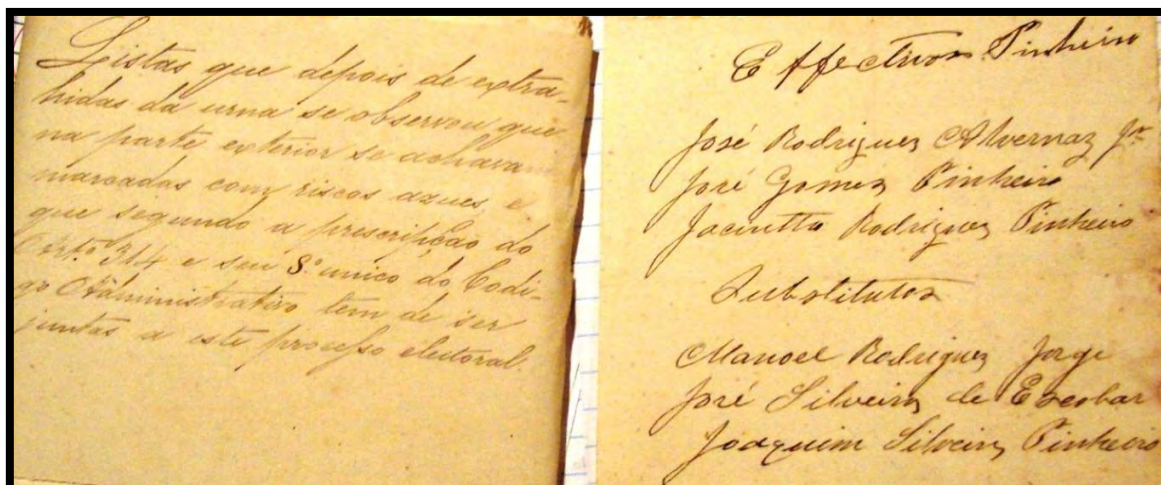 Listas que depois de extra-
hidas da urna se observou que
na parte exterior se achavam
marcadas com riscos azues, e
que segundo a prescripção do
Artº 314 e seu §º unico do Codi-
go Administrativo tem de ser
juntas a este processo eleitoral.
Effectivos Pinheiro
José Rodrigues Alvernaz Jr
José Gomes Pinheiro
Jacintto Rodrigues Pinheiro
Substitutos
Manoel Rodrigues Jorge
José Silveira de Escobar
Joaquim Silveira Pinheiro